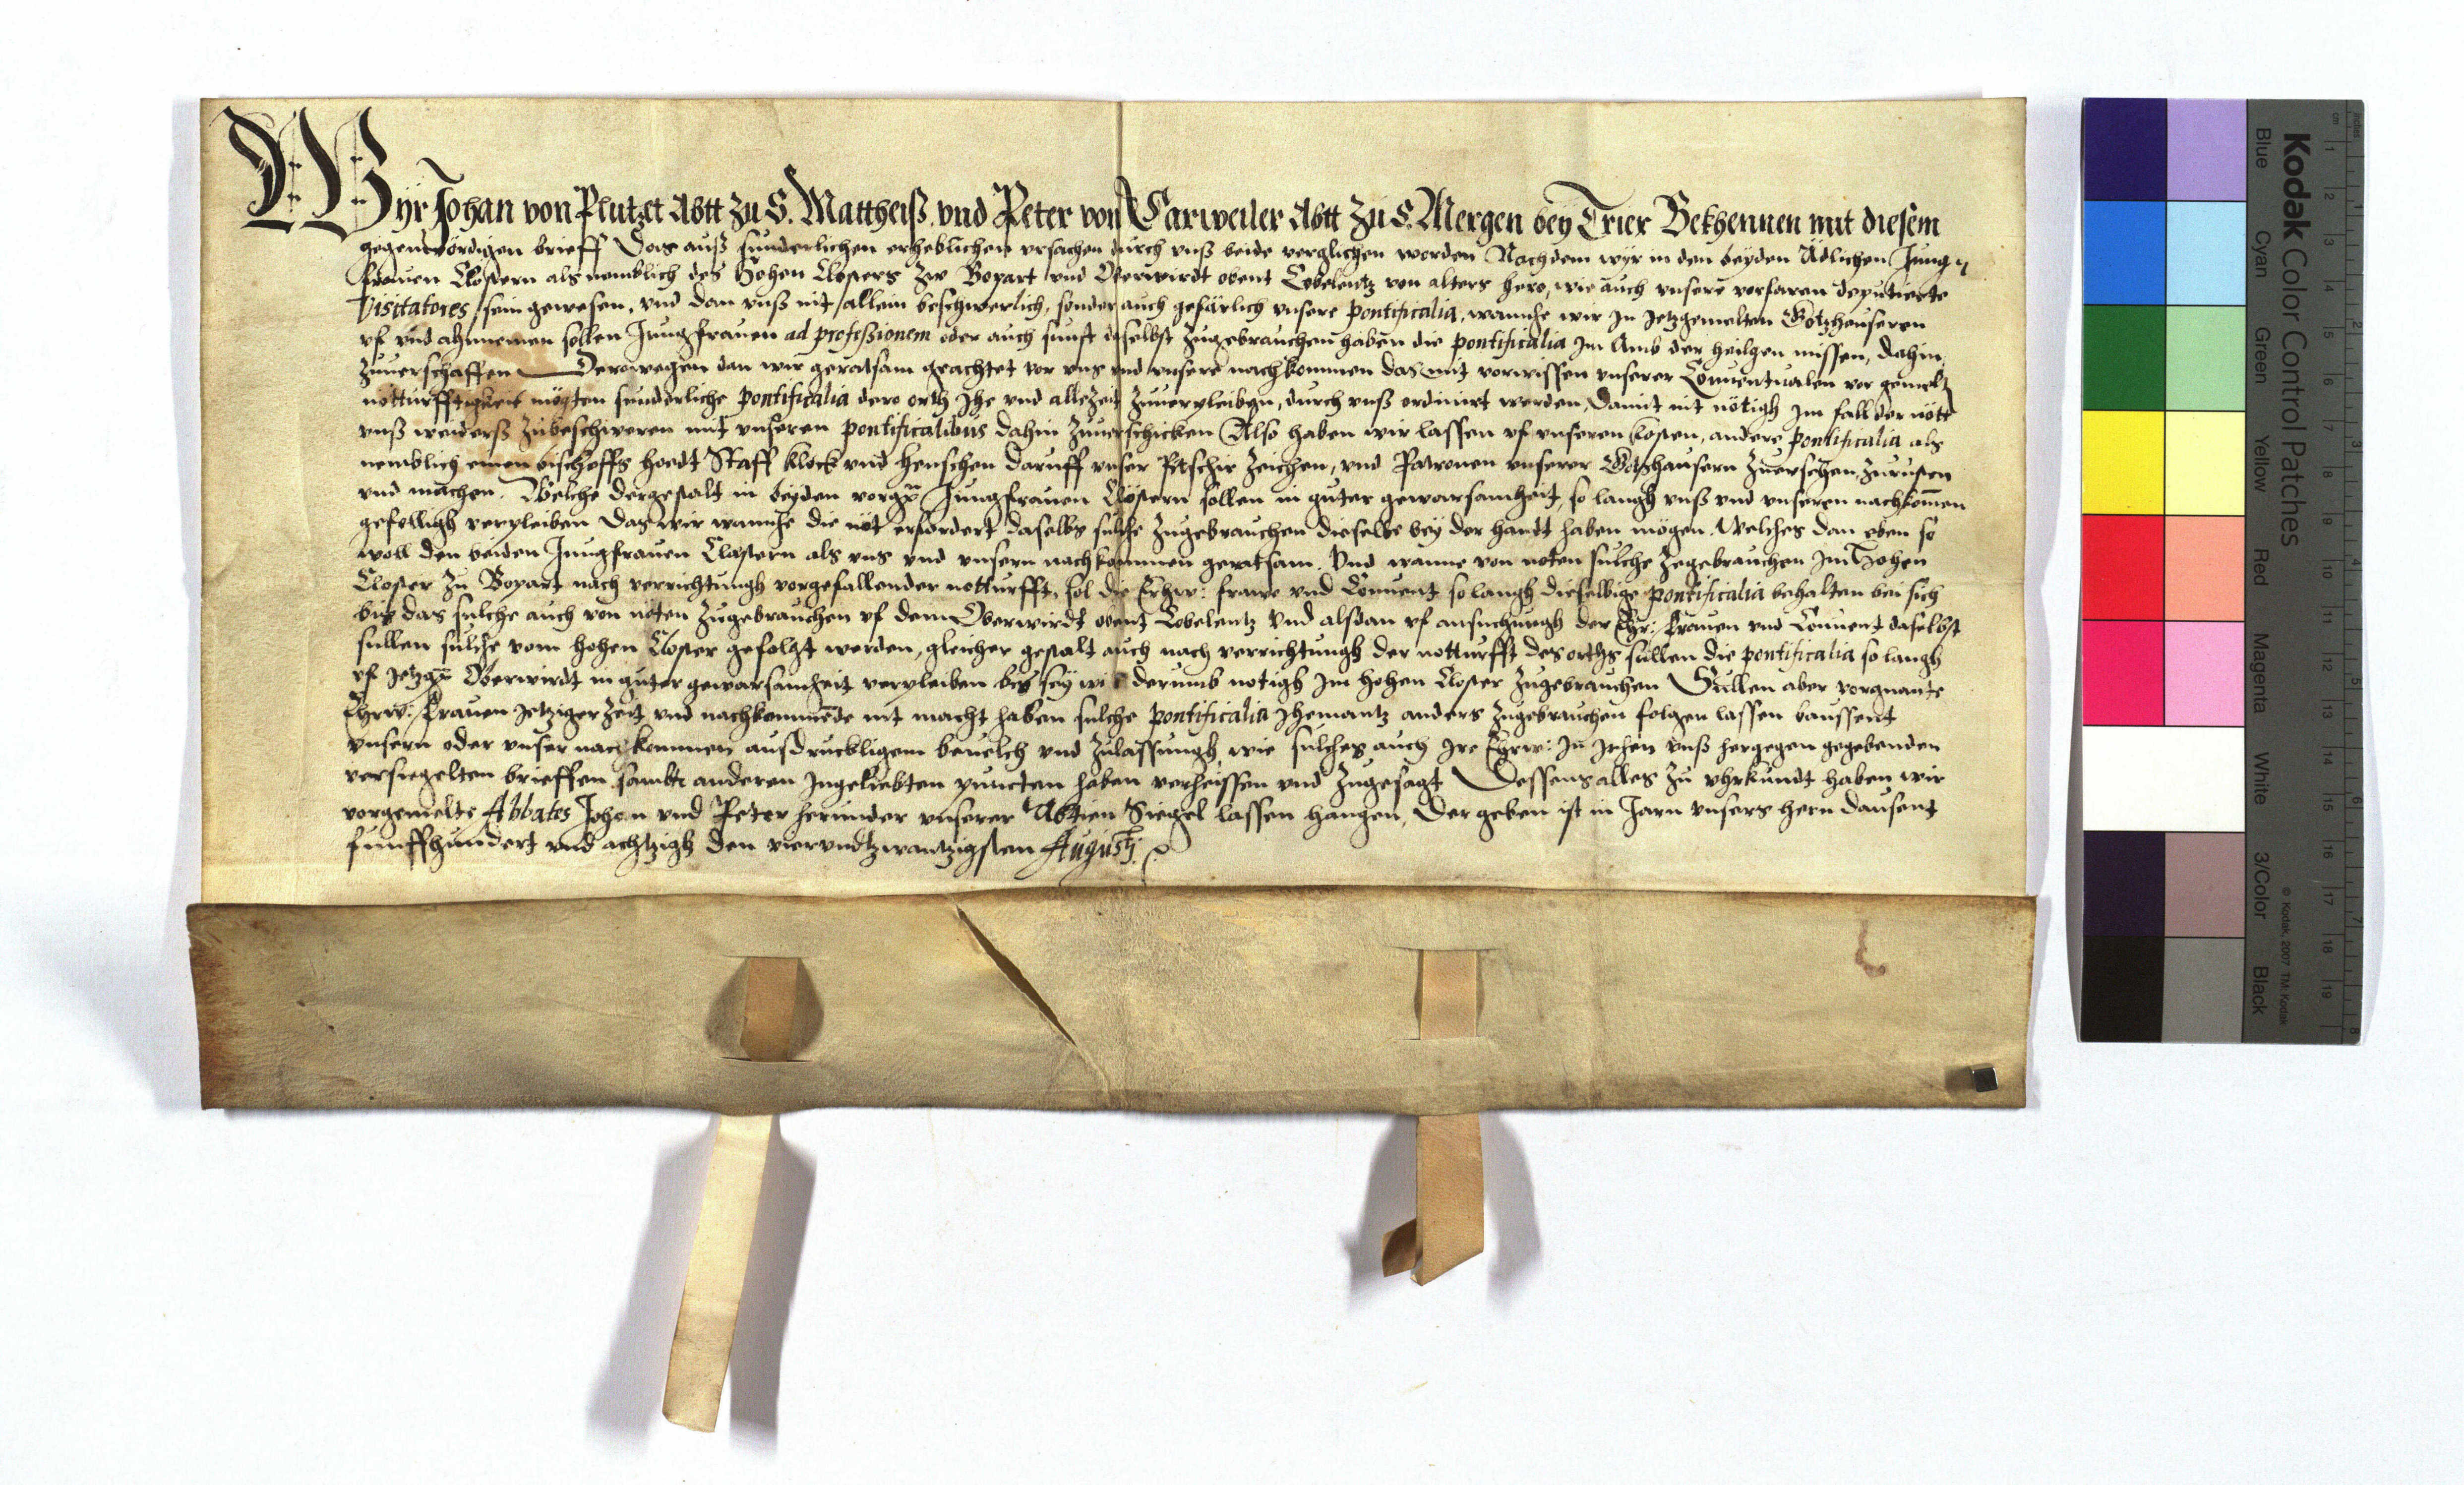 Wyr Johan von Plutzet Abtt zu S. Mattheiß vnd Peter von Carweiler Abtt zu S. Mergen bey Trier Bekhennen mit diesem
gegenwördigen brieff Das auß sunderlichen erheblichen vrsachen durch vnß beide verglichen worden Nachdem wyr in den beyden Adlichen Jung
frauen Clostern als nemblich des Hohen Closters zw Bopart vnd Oberwirdt obent Cobelentz von alters hero, wie auch vnsere vorfaren deputierte
Visitatores sein gewesen, vnd dan vnß nit allein beschwerlich, sonder auch gefärlich vnsere pontificalia, wannehe wir in jetzgemelten Gotzheuseren
vf vnd ahnnemen sollen Jungfrauen ad professionem oder auch sunst daselbst zugebrauchen haben die pontificalia im Amb der heilgen missen, dahin
zuuerschaffen Derowegen dan wir geratsam geachtet vor vns vnd vnsere nachkommen das mit vorwissen vnserer Conuentualen vor gemelt
notturfftigkeit mögten sunderliche pontificalia dero orth jhe vnd allezeit zuuerpleiben, durch vnß ordinirt werden, damit nit nötigh im fall der nött
vnß weiderß zubeschweren mit vnseren pontificalibus dahin zuuerschicken Also haben wir lassen vf vnseren Costen, andere pontificalia als
nemblich einen bischoffs hoedt Staff klock vnd henschen daruff vnser Pitschir zeichen, vnd Patronen vnserer Gotzhausern zuuersehen, zurusten
vnd machen. Welche dergestalt in beyden vorg. Jungfrauen Clöstern sollen in guter gewarsamheit, so langh vnß vnd vnseren nachkommen
gefelligh verpleiben Das wir wannehe die nöt erfordert daselbs sulche zugebrauchen dieselbe bey der handt haben mögen. Welches dan eben so
woll den beiden Jungfrauen Clostern als vns vnd vnsern nachkommen geratsam. Vnd wanne von noten sulche zugebrauchen im Hohen
Closter zu Bopart nach verrichtungh vorgefallender notturfft, sol die Erhw: frawe vnd Conuent so langh dieselbige pontificalia behalten bei sich
biß das sulche auch von nöten zugebrauchen vf dem Oberwirdt obent Cobelentz Vnd alsdan vf ansuchungh der Ehr: Frauen vnd Conuent daselbst
sullen sulche vom hohen Closter gefolgt werden, gleicher gestalt auch nach verrichtungh der notturfft des orths sullen die pontificalia so langh
vf jetzg. Oberwirdt in guter gewarsamheit verpleiben biß sey widerumb notigh im hohen Closter zugebrauchen Sullen aber vorgnante
Ehrw: Frauen jetziger zeit vnd nachkommende nit macht haben sulche pontificalia jhemantz anders zugebrauchen folgen lassen baussent
vnsern oder vnser nachkommen ausdruckligem beuelch vnd zulassungh, wie sulches auch jre Ehrw: in jrhen vnß hergegen gegebenden
versiegelten brieffen sambt anderen jngeliebten puncten haben verheissen vnd zugesagt Dessens alles zu vhrkundt haben wir
vorgemelte Abbates Johan vnd Peter herunder vnserer Abtien Siegel lassen hangen, Der geben ist in Jarn vnsers hern dausent
funffhundert vnd achtzigh den viervndtzwantzigsten Augusti.
Kodak Color Control Patches
Blue Cyan Green Yellow Red Magenta White 3/Color Black
© Kodak, 2007 TM: Kodak
cm 1 2 3 4 5 6 7 8 9 10 11 12 13 14 15 16 17 18 19
inches 1 2 3 4 5 6 7 8